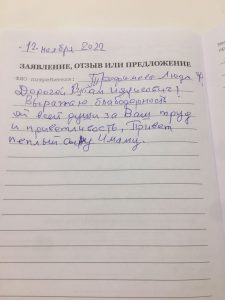 12 ноября 2022
ЗАЯВЛЕНИЕ, ОТЗЫВ ИЛИ ПРЕДЛОЖЕНИЕ
ФИО потребителя: Трофимова Люда
Дорогой
Выражаю благодарность
от всей души за Ваш труд
и приветливость, Привет
теплый